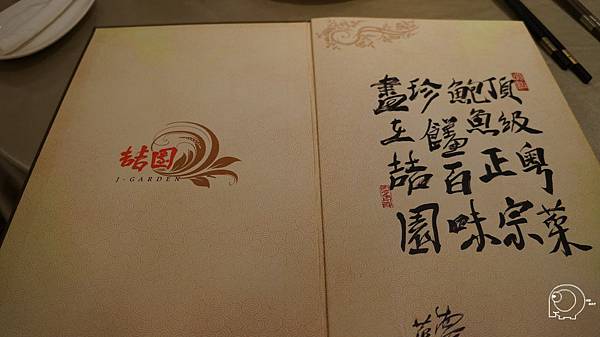 喆園
J-GARDEN
頂級粵菜
鮑魚正宗
珍饈百味
盡在喆園